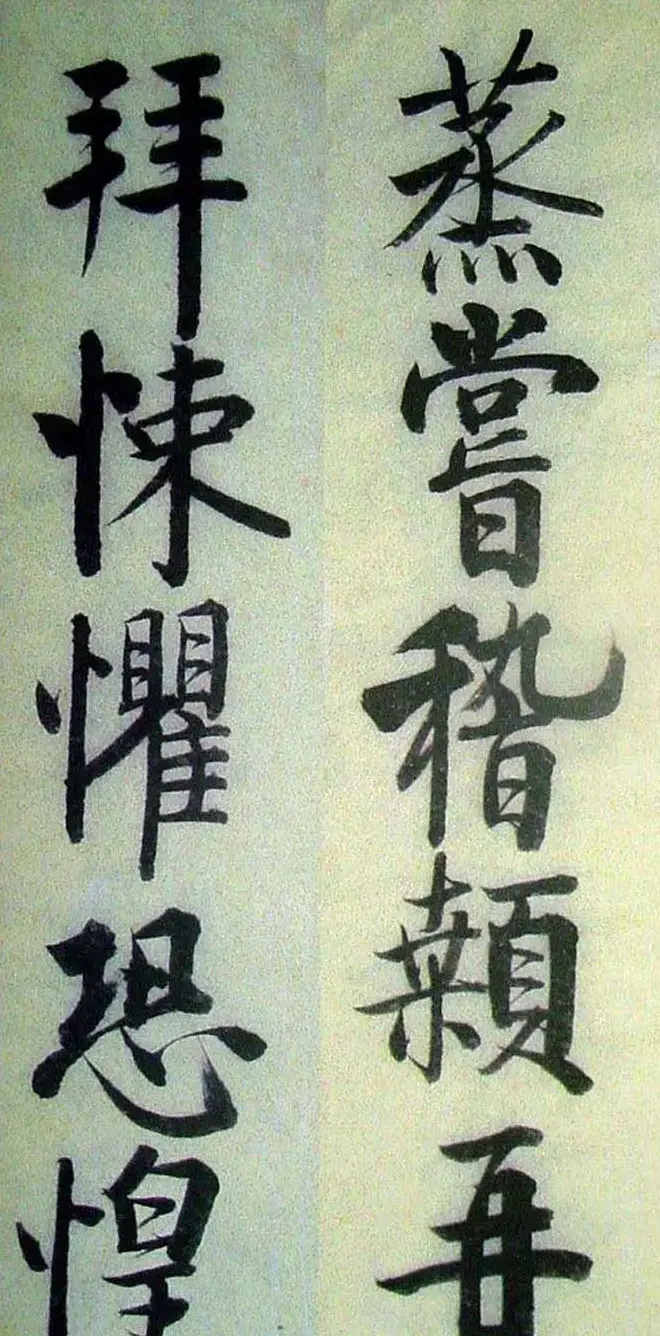 蒸嘗稽顙再
拜悚懼恐惶